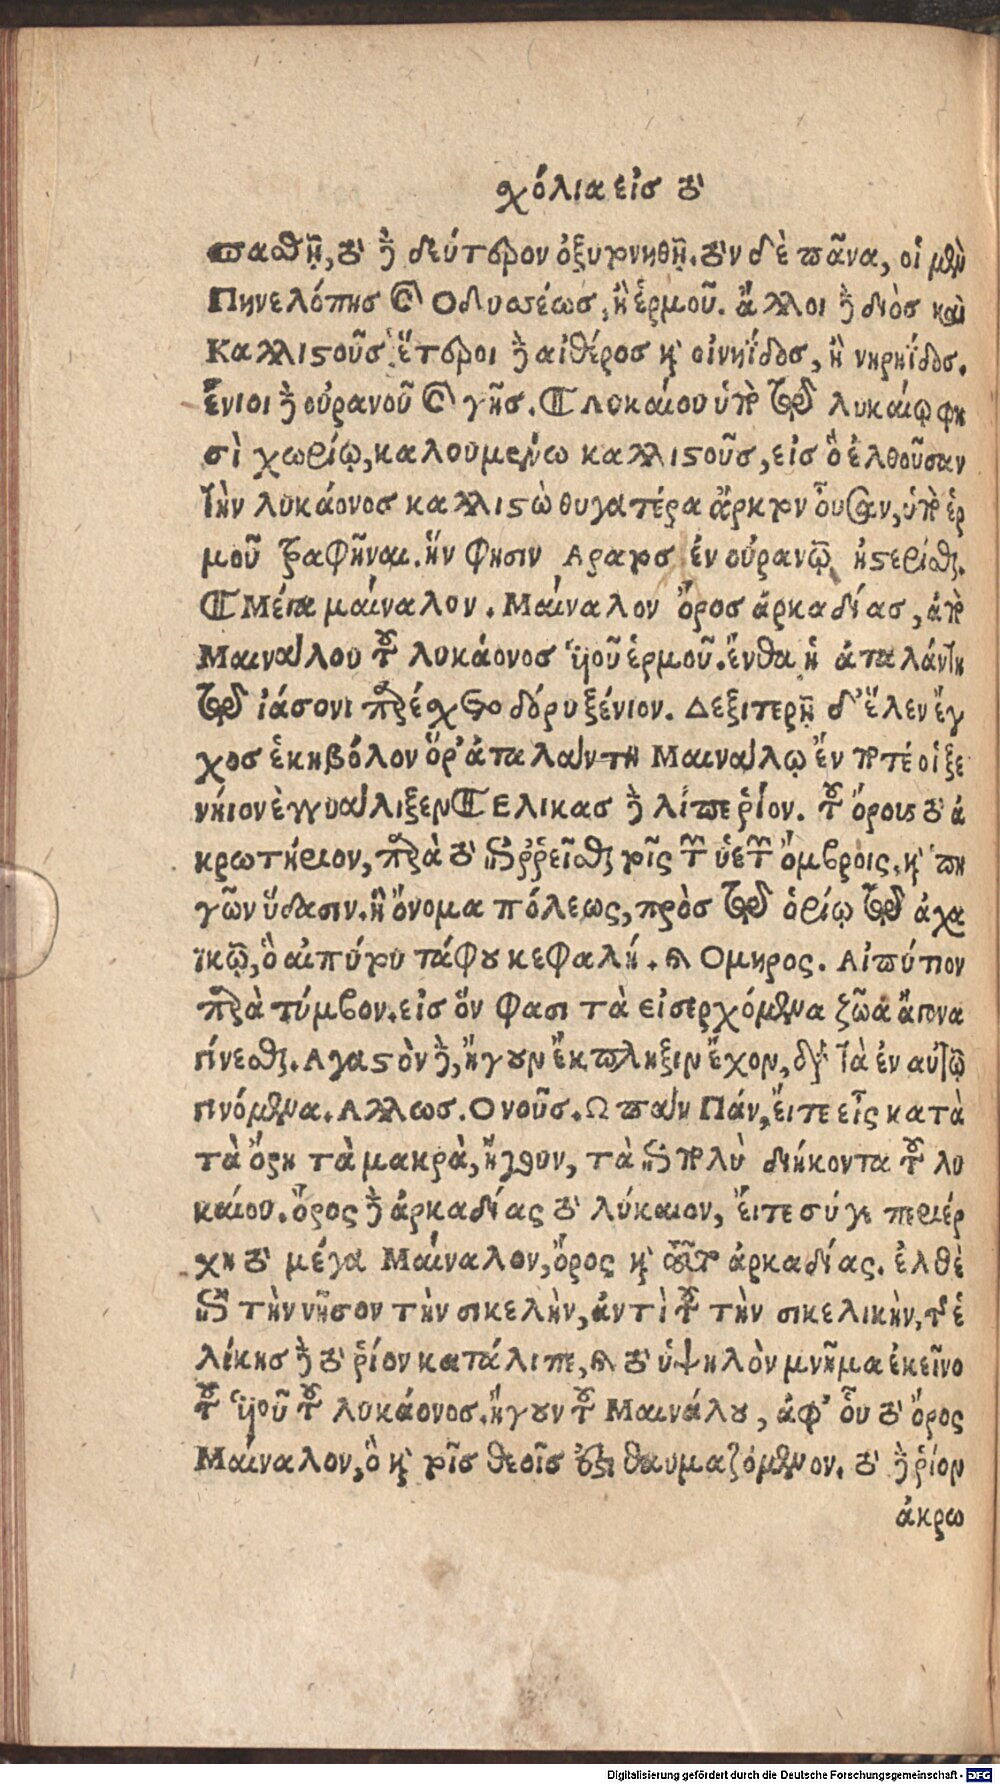 χόλια εἰσ τὸ
παθῇ, τὸ δὲ δεύτερον ὀξυτονηθῇ. τὸν δὲ πᾶνα, οἱ μὲν
Πηνελόπησ καὶ Οδυσέωσ, ἢ ἑρμοῦ. ἄλλοι δὲ διὸσ καὶ
Καλλιστοῦσ. ἕτεροι δὲ αἰθέροσ καὶ οἰνηΐδοσ, ἢ νηρηΐδοσ.
ἔνιοι δὲ οὐρανοῦ καὶ γῆσ. Λυκαίου ὑπὸ τῷ λυκαίῳ φη
σὶ χωρίῳ, καλουμένω καλλιστοῦσ, εἰσ ὃ ἐλθοῦσαν
τὴν λυκάονοσ καλλιστὼ θυγατέρα ἄρκτον οὖσαν, ὑπὸ ἑρ
μοῦ ταφῆναι. ἥν φησιν Αρατοσ ἐν οὐρανῷ ἠστερίσθαι.
Μέγα μαίναλον. Μαίναλον ὄροσ ἀρκαδίασ, ἀπὸ
Μαινάλου τοῦ λυκάονοσ υἱοῦ ἑρμοῦ. ἔνθα ἡ ἀταλάντη
τῷ ἰάσονι παρέσχετο δόρυ ξένιον. Δεξιτερῇ δ' ἕλεν ἔγ
χοσ ἑκηβόλον ὅρ' ἀταλάντη Μαινάλῳ ἔν ποτέ οἱ ξε
νήιον ἐγγυάλιξεν Ελικασ δὲ λίπε ῥίον. τοῦ ὄρουσ τὸ ἀ
κρωτήριον, παρὰ τὸ διαρρεῖσθαι τοῖς τῶν ὑετῶν ὄμβροις, καὶ πη
γῶν ὕδασιν. ἢ ὄνομα πόλεως, πρὸσ τῷ ὁρίῳ τῷ ἀχα
ϊκῷ, ὃ αἰπύτου τάφου κεφαλή. καὶ Ομηρος. Αἰπύτιον
παρὰ τύμβον. εἰσ ὅν φασι τὰ εἰσερχόμενα ζῶα ἄγονα
γίνεσθαι. Αγαστὸν δὲ, ἤγουν ἔκπληξιν ἔχον, διὰ τὰ ἐν αὐτῷ
γινόμενα. Αλλωσ. Ο νοῦσ. Ω πὰν Πάν, εἴτε εἶς κατὰ
τὰ ὄρη τὰ μακρὰ, ἤγουν, τὰ διὰ πολὺ διήκοντα τοῦ λυ
καίου. ὄρος δὲ ἀρκαδίας τὸ λύκαιον, εἴτε σύγε περιέρ
χη τὸ μέγα Μαίναλον, ὄρος καὶ αὐτὸ ἀρκαδίας. ἐλθὲ
ἐπὶ τὴν νῆσον τὴν σικελὴν, ἀντὶ τοῦ τὴν σικελικὴν, τῆς ἑ
λίκησ δὲ τὸ ῥίον κατάλιπε, καὶ τὸ ὑψηλὸν μνῆμα ἐκεῖνο
τοῦ υἱοῦ τοῦ λυκάονοσ. ἤγουν τοῦ Μαινάλου, ἀφ' οὗ τὸ ὄρος
Μαίναλον, ὃ καὶ τοῖσ θεοῖσ ἐστι θαυμαζόμενον. τὸ δὲ ῥίον
ἀκρω
Digitalisierung gefördert durch die Deutsche Forschungsgemeinschaft - DFG